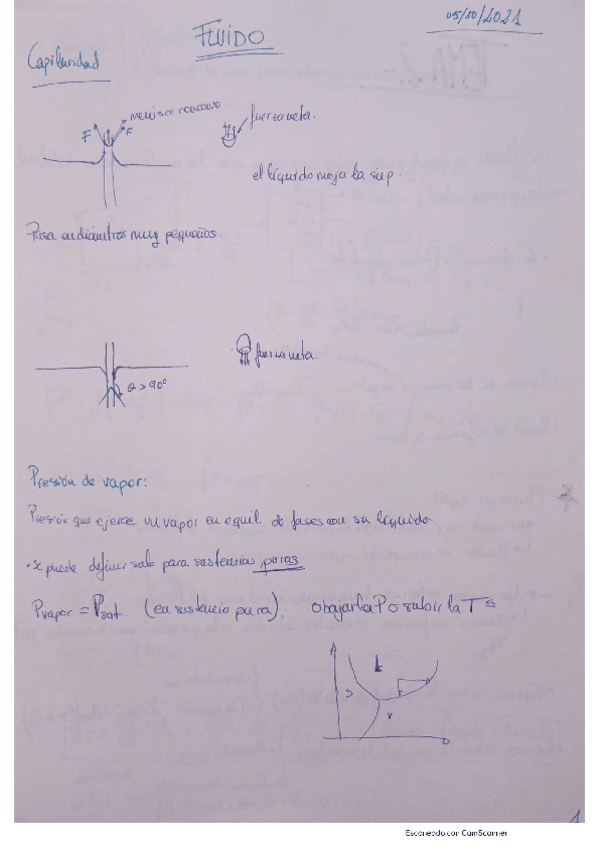 05/10/2021
FLUIDO
Capilaridad
menisco concavo
F
F
fuerza neta.
el líquido moja la sup.
Pasa en diámetros muy pequeños.
fuerza neta.
θ > 90°
Presión de vapor:
Presión que ejerce un vapor en equil. de fases con su líquido
puede definir solo para sustancias puras
Pvapor = Psat. (en sustancia pura). o bajar la P o subir la T
L
S
V
1
Escaneado con CamScanner